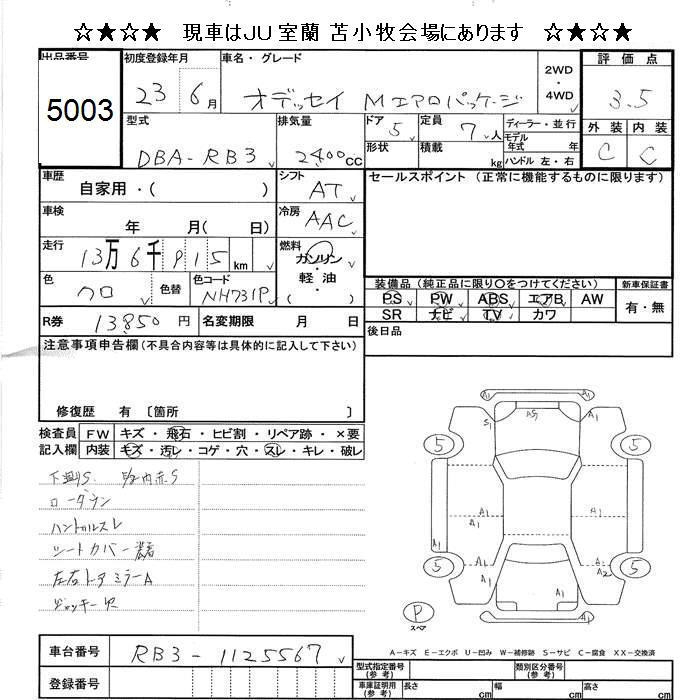 ☆★☆★ 現車はJU室蘭 苫小牧会場にあります ☆★☆★
出品番号 初度登録年月 車名・グレード 2WD・4WD 評価点
5003 23 6月 オデッセイ Mエアロパッケージ 3.5
型式 排気量 ドア 定員 ディーラー・並行 外装 内装
DBA-RB3 2400cc 5 7人 モデル年式 年 C C
形状 積載 kg ハンドル 左・右
車歴 シフト セールスポイント (正常に機能するものに限ります)
自家用・( ) AT
車検 冷房
年 月( 日) AAC
走行 燃料
13万6千915km ガソリン・軽油
色 色替 色コード 装備品 (純正品に限り○をつけてください) 新車保証書
クロ NH731P PS PW ABS エアB AW 有・無
SR ナビ TV カワ
R券 13,850円 名変期限 月 日 後日品
注意事項申告欄(不具合内容等は具体的に記入して下さい)
修復歴 有 〔箇所 〕
検査員 FW キズ・飛石・ヒビ割・リペア跡・×要
記入欄 内装 キズ・汚レ・コゲ・穴・スレ・キレ・破レ
下廻りS
ローダウン
ハンドルスレ
シートカバー装着
左右ドアミラーA
ジャッキ欠
A1 A1
S1 AS1 A1
5 5
A1 A1 A1
A1
5 A1 A2 5
A1 A1
P
スペア
A-キズ E-エクボ U-凹み W-補修跡 S-サビ C-腐食 XX-交換済
車台番号 RB3-1125567
型式指定番号(参考) 類別区分番号(参考)
登録番号 車庫証明用(参考) 長さ cm 幅 cm 高さ cm